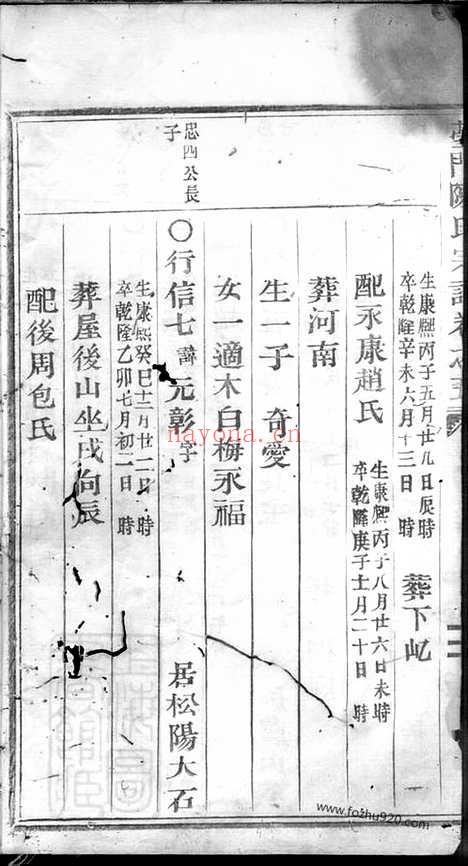 陳氏宗譜卷之五
生康熙丙子五月廿九日辰時
卒乾隆辛未六月十三日　時
葬下屹
配永康趙氏
生康熙丙子八月廿六日未時
卒乾隆庚子十二月二十日　時
葬河南
生一子　奇愛
女一適木白梅永福
忠四公長子
〇行信七諱元彰字　居松陽大石
生康熙癸巳十二月廿二日　時
卒乾隆乙卯七月初二日　時
葬屋後山坐戌向辰
配後周包氏
nayona.cn
www.fozhu920.com